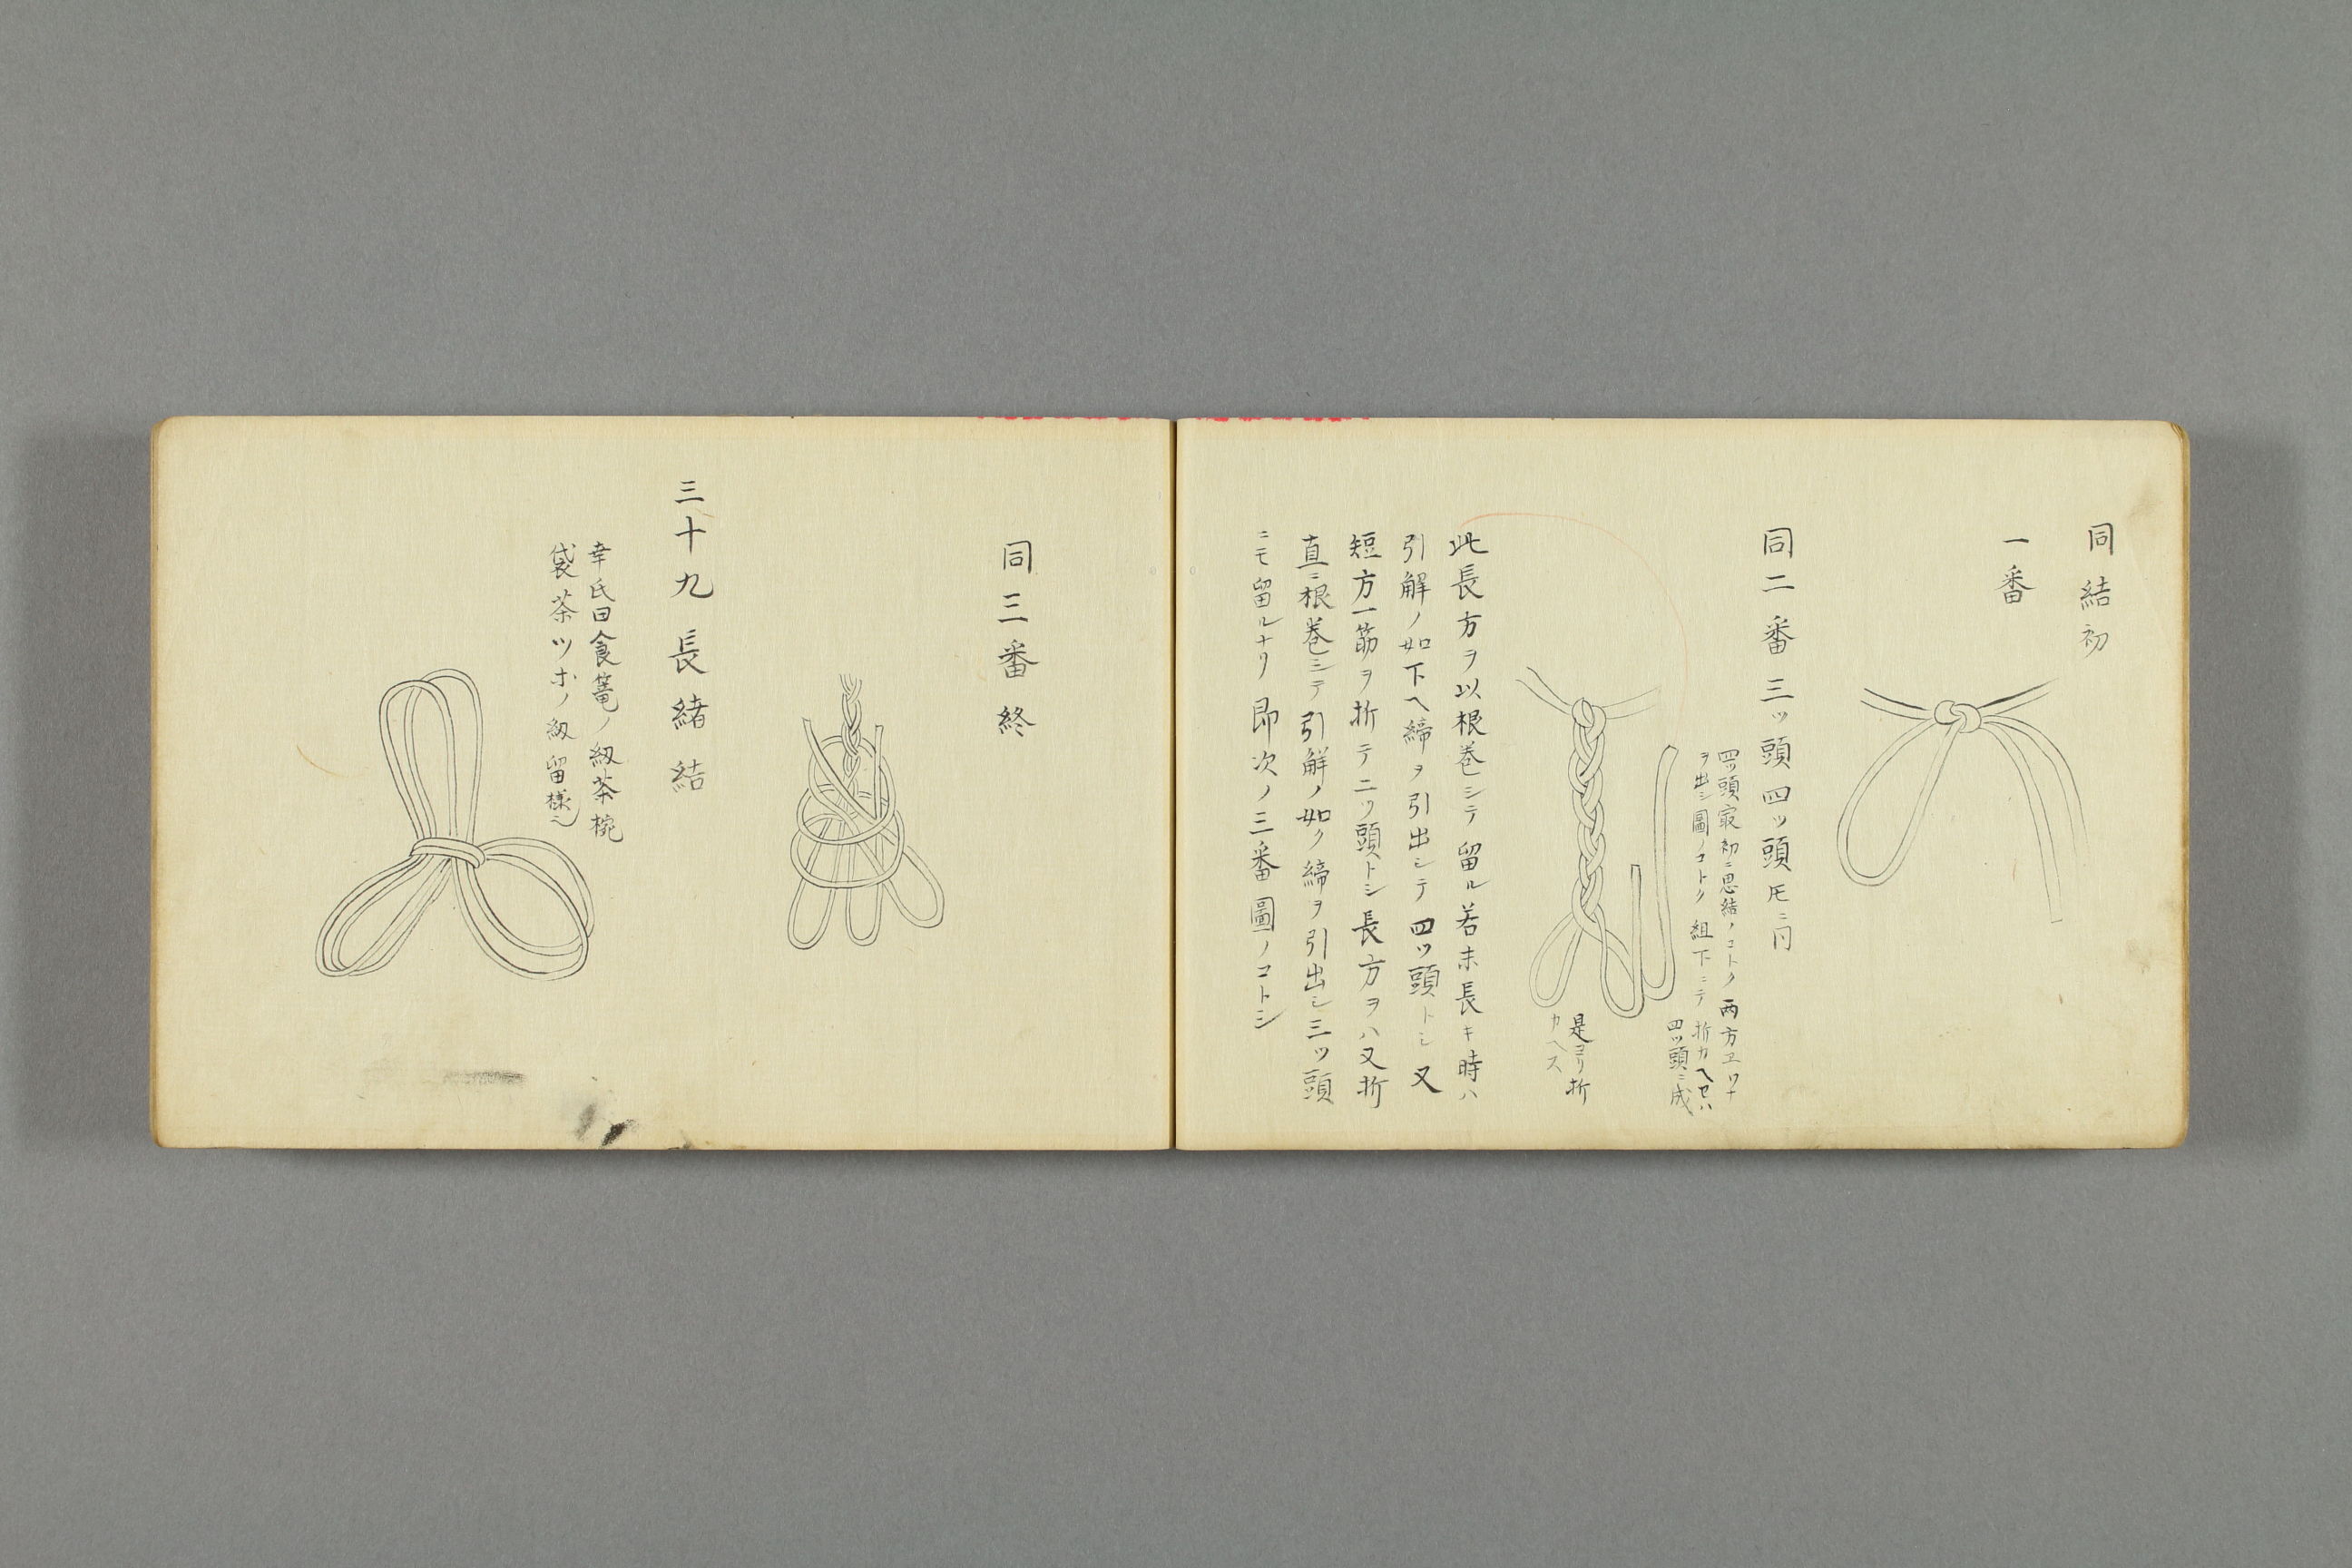 同結初
一番
同二番三ツ頭四ツ頭𪜈ニ同
四ツ頭最初ニ思結ノコトク両方エワナ
ヲ出シ圖ノコトク組下ニテ折カヘセハ
四ツ頭ニ成
是ヨリ折
カヘス
此長方ヲ以根巻シテ留ル若末長キ時ハ
引解ノ如下ヘ締ヲ引出シテ四ツ頭トシ又
短方一筋ヲ折テ二ツ頭トシ長方ヲハ又折
直ニ根巻シテ引解ノ如ク締ヲ引出シ三ツ頭
ニモ留ルナリ即次ノ三番圖ノコトシ
同三番終
三十九長緒結
幸氏曰食篭ノ紐茶椀
袋茶ツホノ紐留様也